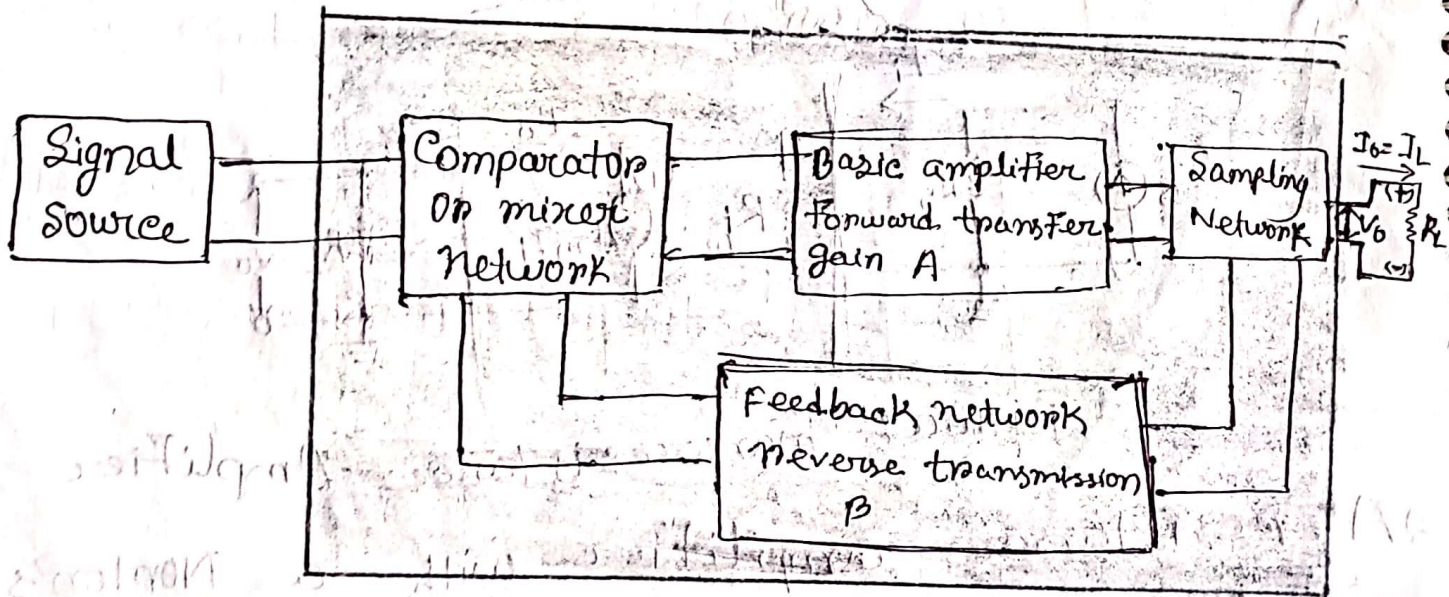 Signal
Source
Comparator
or mixer
network
Basic amplifier
forward transfer
gain A
Sampling
Network
I₀ = I_L
(+)
V₀
R_L
(-)
Feedback network
reverse transmission
β
Amplifier